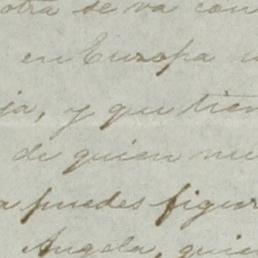 otra se va con
en Europa
ja, y que tien
de quien
a puedes figur
Angela, quien